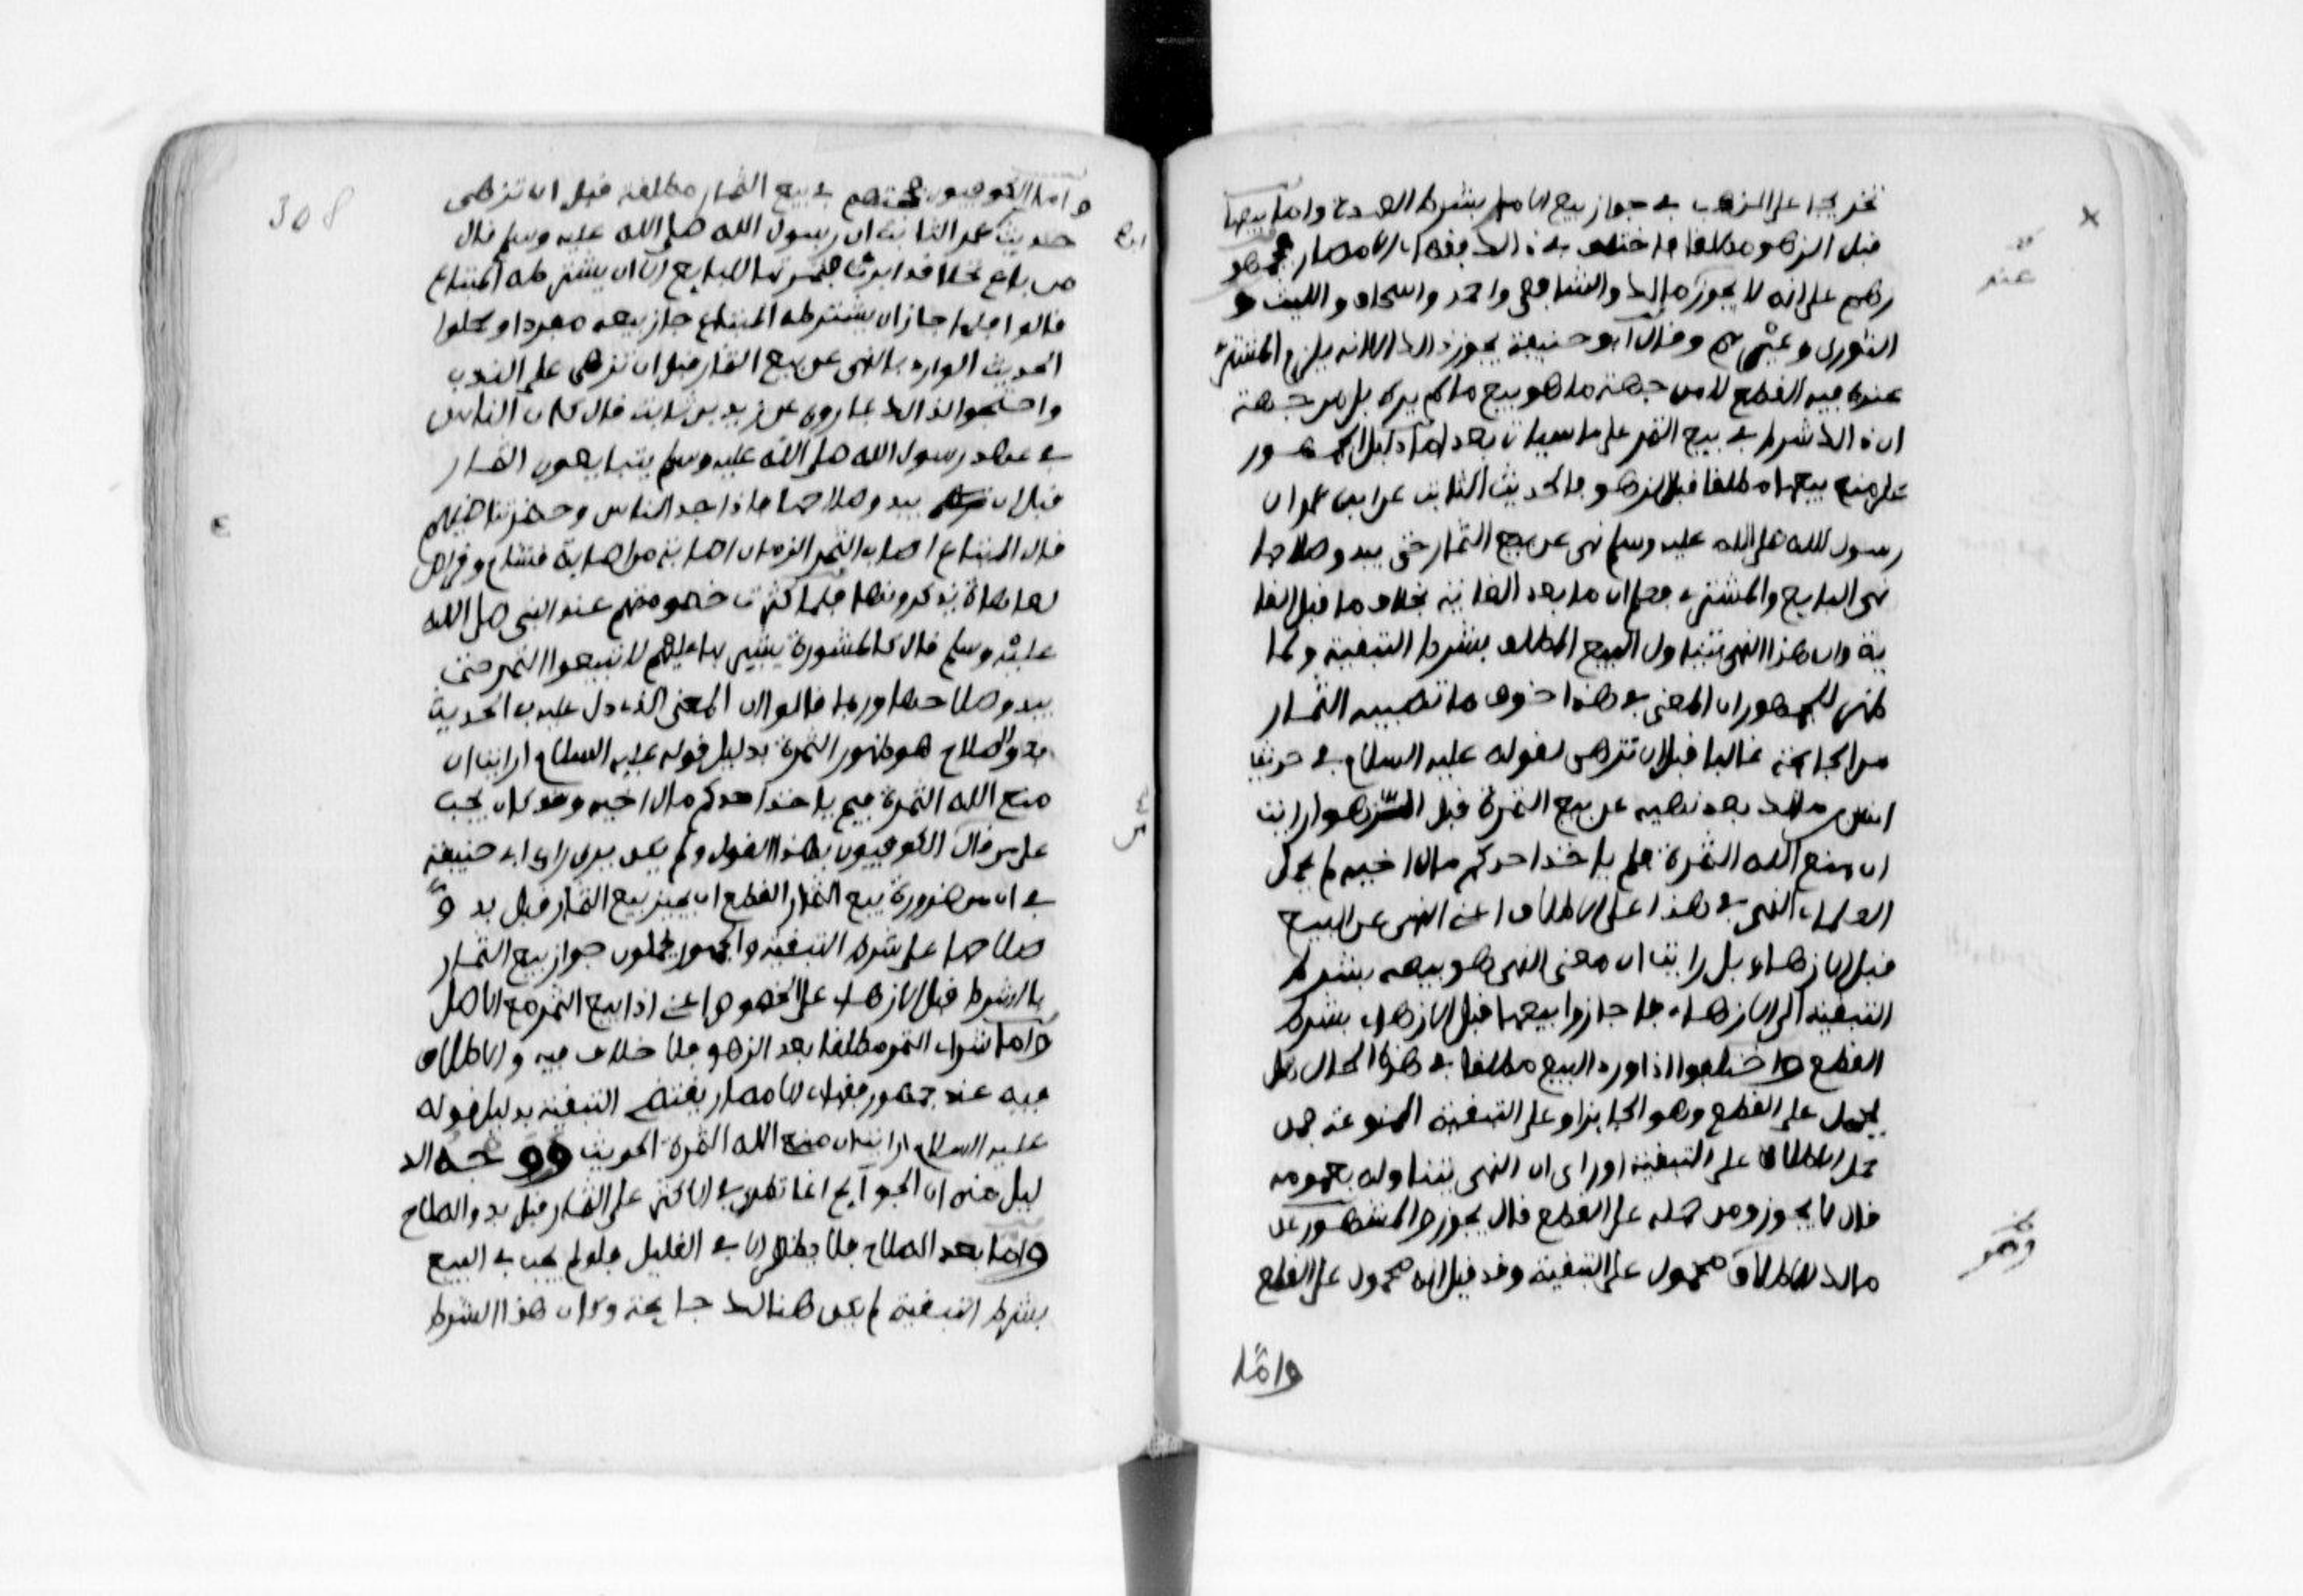 تخريجا على المذهب في جواز بيع الاصل بشرط العهدة واما بيعها
قبل الزهو مطلقا فاختلف في ذالك فقهاء الامصار فجمهو
رهم على انه لا يجوز مالك والشافعي واحمد واسحاق والليث و
الثوري وغيرهم وقال ابو حنيفة يجوز ذالك الا انه يلزم المشتري
عنده فيه القطع لا من جهة ما هو بيع ما لم يره بل من جهة
ان ذالك شرط في بيع الثمر على ما سياتي بعد اما دليل الجمهور
على منع بيعها مطلقا قبل الزهو فالحديث الثابت عن ابن عمر ان
رسول الله صلى الله عليه وسلم نهى عن بيع الثمار حتى يبدو صلاحها
نهى البايع والمشتري فعلم ان ما بعد الغاية بخلاف ما قبل الغا
ية وان هذا النهي يتناول البيع المطلق بشرط التبقية ولما
ظهر للجمهور ان المعنى في هذا خوف ما تصيبه الثمار
من الجايحة غالبا قبل ان تزهى لقوله عليه السلام في حديث
انس بن مالك بعد نهيه عن بيع الثمرة قبل الزهو ارايت
ان منع الله الثمرة فلم ياخذ احدكم مال اخيه لم يحمل
العلماء النهي في هذا على الاطلاق اعني النهي عن البيع
قبل الازهاء بل رايت ان معنى النهي هو بيعه بشرط
التبقية الى الازهاء فاجازوا بيعها قبل الازهاء بشرط
القطع واختلفوا اذا ورد البيع مطلقا في هذا الحال هل
يحمل على القطع وهو الجايز او على التبقية الممنوعة فمن
حمل الاطلاق على التبقية او راى ان النهي يتناوله بعمومه
قال لا يجوز ومن حمله على القطع قال يجوز والمشهور عن
مالك الاطلاق محمول على التبقية وقد قيل انه محمول على القطع
واما
308
واما الكوفيون فحجتهم في بيع الثمار مطلقة قبل ان تزهى
حديث عمر الثابت ان رسول الله صلى الله عليه وسلم قال
من باع نخلا قد ابرت فثمرتها للبايع الا ان يشترطه المبتاع
قالوا فلما جاز ان يشترطه المبتاع جاز بيعه مفردا وحملوا
الحديث الوارد بالنهي عن بيع الثمار قبل ان تزهى على الندب
واحتجوا لذالك بما روي عن زيد بن ثابت قال كان الناس
في عهد رسول الله صلى الله عليه وسلم يتبايعون الثمار
قبل ان يبدو صلاحها فاذا جد الناس وحضر تقاضيهم
قال المبتاع اصاب الثمر الزمان اصابه مراض اصابه قشام
لعاهات يذكرونها فلما كثرت خصومتهم عند النبي صلى الله
عليه وسلم قال كالمشورة يشير بها عليهم لا تبيعوا الثمر حتى
يبدو صلاحها وربما قالوا ان المعنى الذي دل عليه في الحديث
بدو الصلاح هو ظهور الثمرة بدليل قوله عليه السلام ارايت ان
منع الله الثمرة فبم ياخذ احدكم مال اخيه وقد كان يجب
على من قال الكوفيون بهذا القول ولم يكن يرى راي ابي حنيفة
في ان من ضرورة بيع الثمار القطع ان يجيز بيع الثمار قبل بدو
صلاحها على شرط التبقية والجمهور يحملون جواز بيع الثمار
بالشرط قبل الازهاء على الخصوص اعني اذا بيع الثمر مع الاصل
واما شراء الثمر مطلقا بعد الزهو فلا خلاف فيه والاطلاق
فيه عند جمهور فقهاء الامصار يقتضي التبقية بدليل قوله
عليه السلام ارايت ان منع الله الثمرة الحديث ووجه الد
ليل منه ان الجوايح انما تطرى في الاكثر على الثمار قبل بدو الصلاح
واما بعد الصلاح فلا تظهر الا في القليل فلو لم يجب في البيع
بشرط التبقية لم يكن هنالك جايحة وكان هذا الشرط